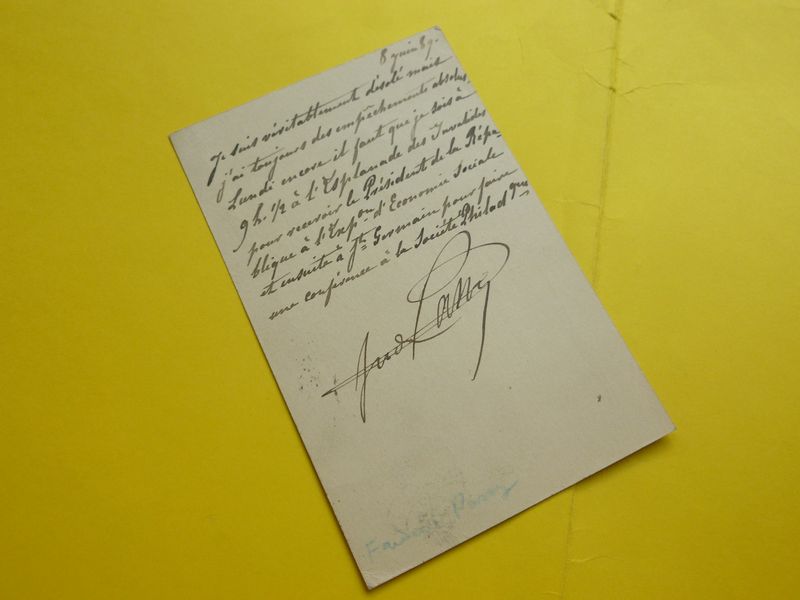 8 juin 89.
Je suis véritablement désolé mais
j'ai toujours des empêchements absolus.
Lundi encore il faut que je sois à
9 h. 1/2 à l'Esplanade des Invalides
pour recevoir le Président de la Répu-
blique à l'Expon d'Economie Sociale
et ensuite à St Germain pour faire
une conférence à la Société Philad que
Fréd Passy
Passy